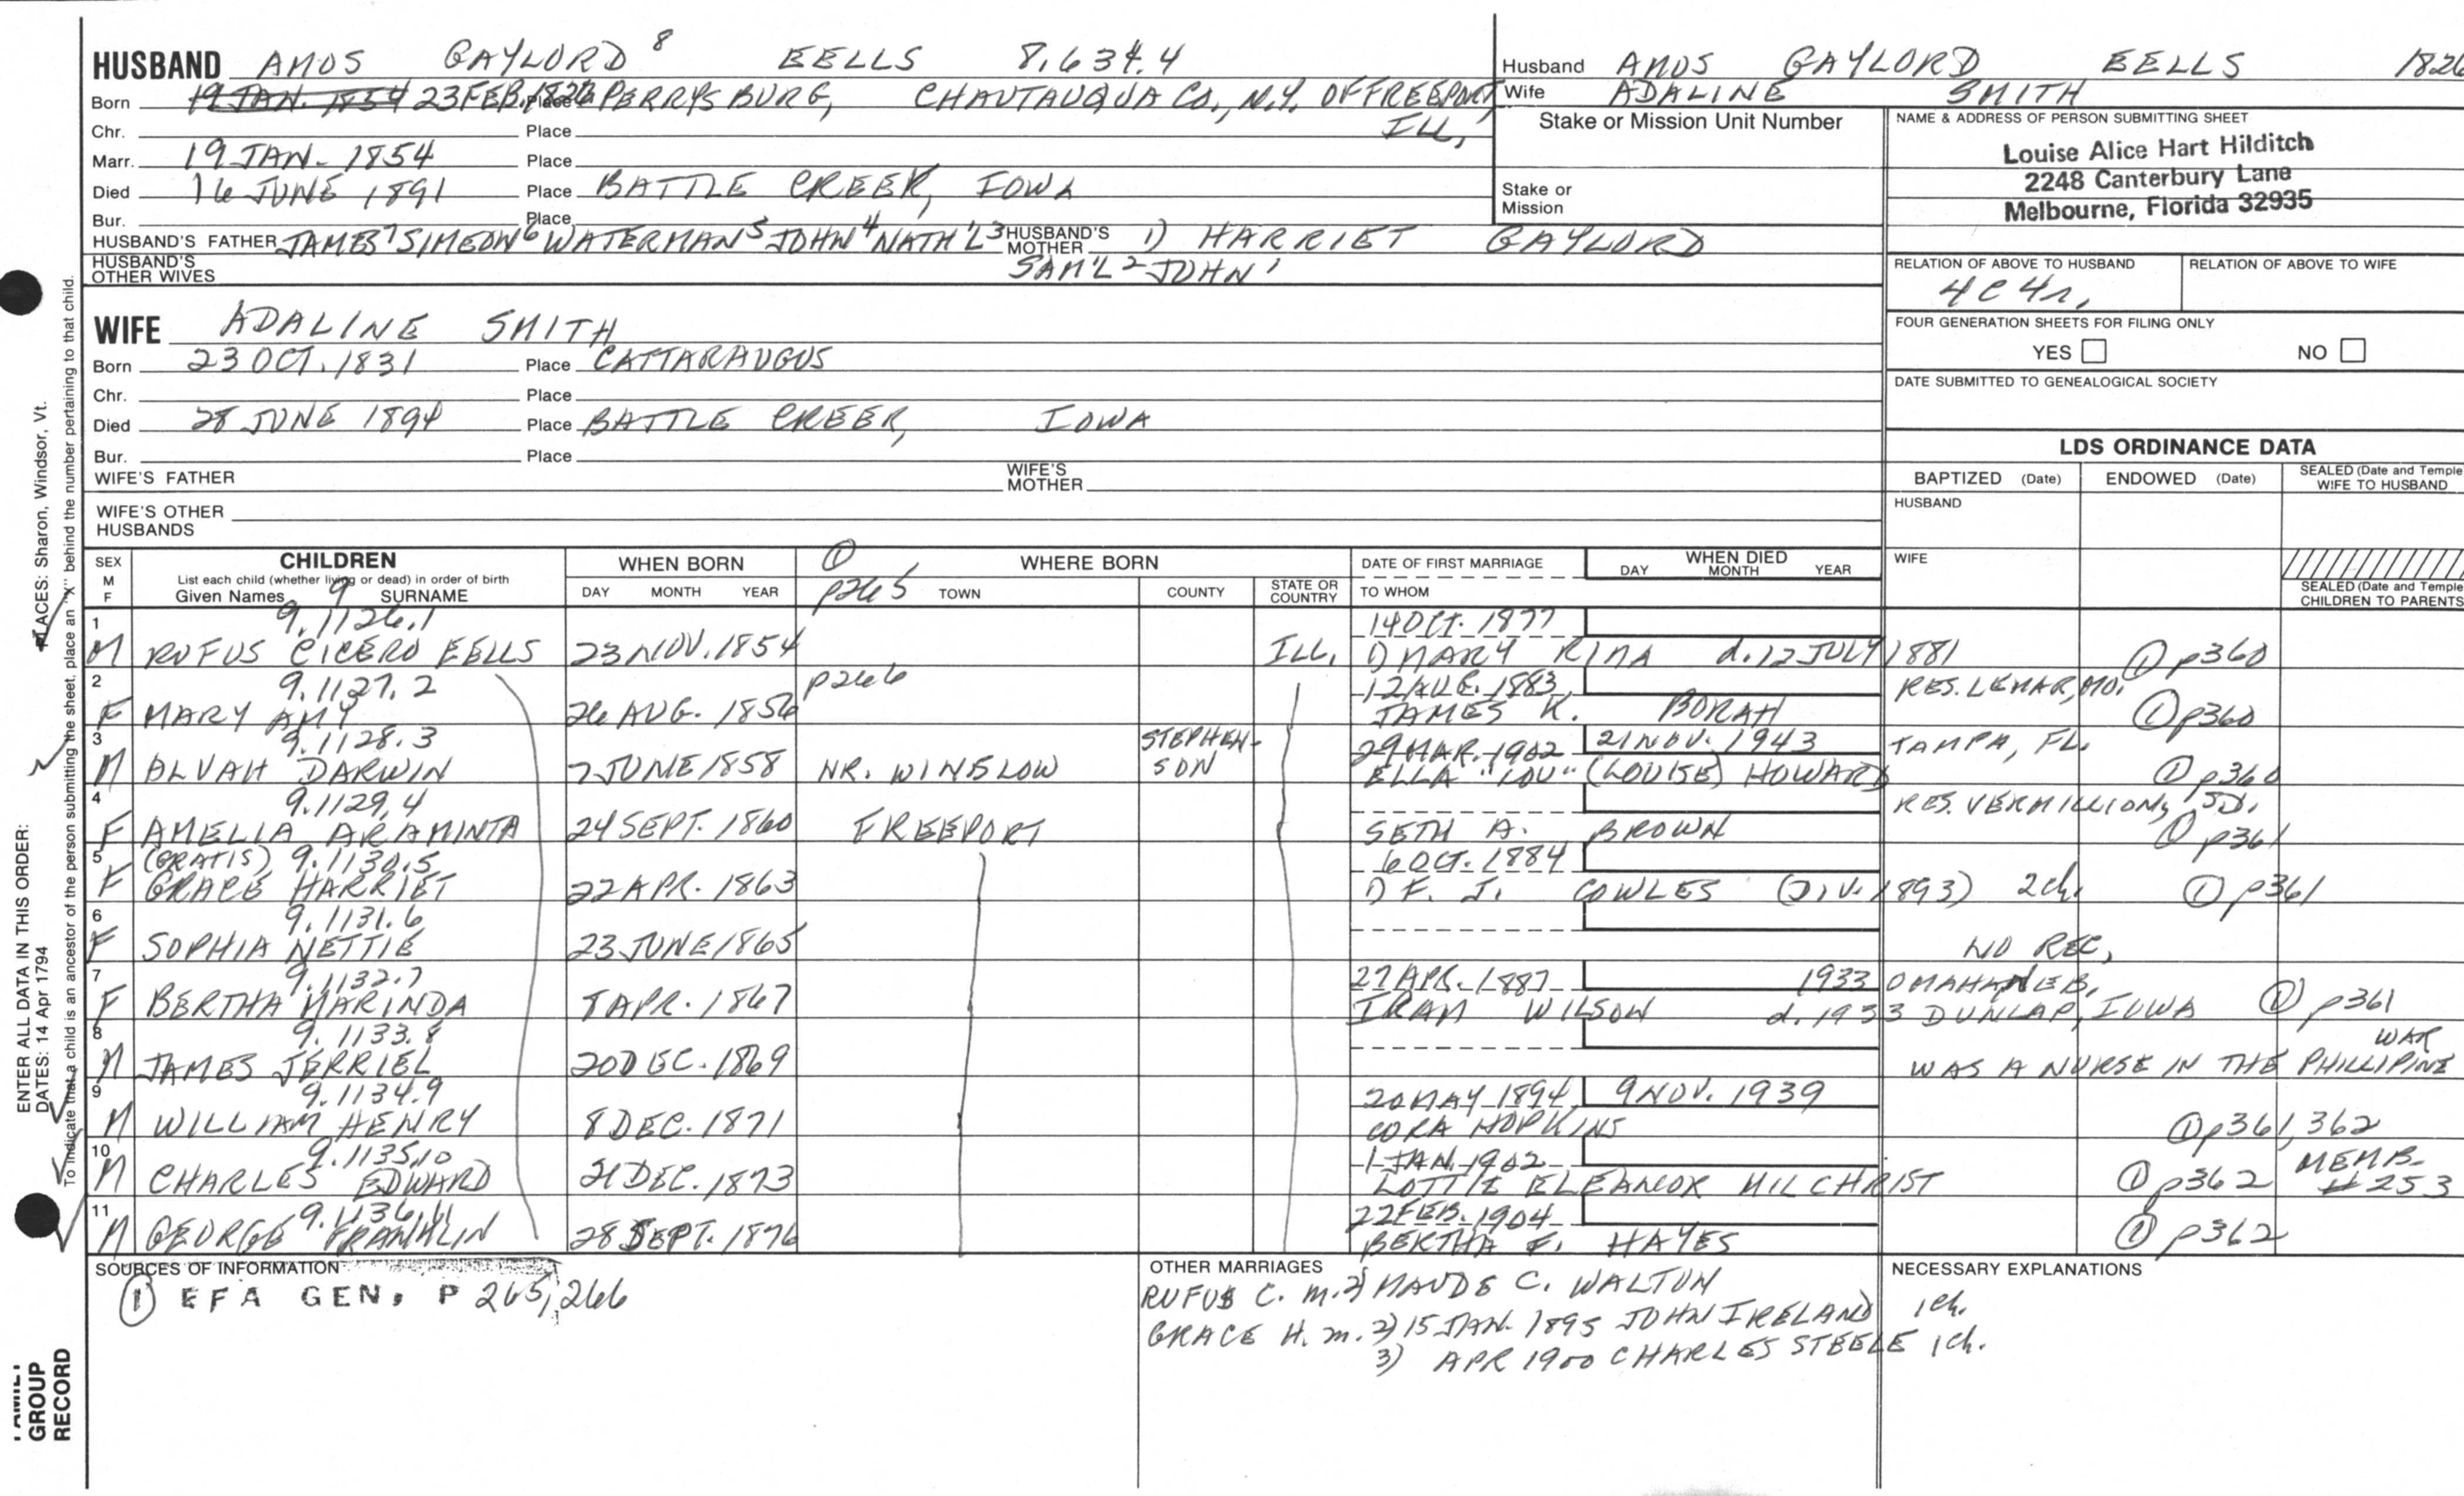 HUSBAND AMOS GAYLORD 8 EELLS 8,634.4
Born 19 JAN. 1854 23 FEB. 1826 Place PERRYSBURG, CHAUTAUQUA CO., N.Y. OF FREEPORT
ILL,
Chr. Place
Marr. 19 JAN. 1854 Place
Died 16 JUNE 1891 Place BATTLE CREEK, IOWA
Bur. Place
HUSBAND'S FATHER JAMES 7 SIMEON 6 WATERMAN 5 JOHN 4 NATH'L 3 HUSBAND'S MOTHER 1) HARRIET GAYLORD
SAM'L 2 JOHN 1
HUSBAND'S OTHER WIVES
WIFE ADALINE SMITH
Born 23 OCT. 1831 Place CATTARAUGUS
Chr. Place
Died 28 JUNE 1894 Place BATTLE CREEK, IOWA
Bur. Place
WIFE'S FATHER WIFE'S MOTHER
WIFE'S OTHER HUSBANDS
Husband AMOS GAYLORD EELLS 1826
Wife ADALINE SMITH
Stake or Mission Unit Number
Stake or Mission
NAME & ADDRESS OF PERSON SUBMITTING SHEET
Louise Alice Hart Hilditch
2248 Canterbury Lane
Melbourne, Florida 32935
RELATION OF ABOVE TO HUSBAND RELATION OF ABOVE TO WIFE
4C4r,
FOUR GENERATION SHEETS FOR FILING ONLY
YES NO
DATE SUBMITTED TO GENEALOGICAL SOCIETY
LDS ORDINANCE DATA
BAPTIZED (Date) ENDOWED (Date) SEALED (Date and Temple
WIFE TO HUSBAND
HUSBAND
WIFE
SEALED (Date and Temple
CHILDREN TO PARENTS
SEX
M
F
CHILDREN
List each child (whether living or dead) in order of birth
Given Names 9 SURNAME
WHEN BORN
DAY MONTH YEAR
① p265
WHERE BORN
TOWN COUNTY STATE OR COUNTRY
DATE OF FIRST MARRIAGE
TO WHOM
WHEN DIED
DAY MONTH YEAR
1 9.1126.1 14 OCT. 1877
M RUFUS CICERO EELLS 23 NOV. 1854 ILL, 1) MARY RIMA d. 12 JULY 1881 ① p360
2 9.1127.2 p266 12 AUG. 1883 RES. LEMAR, MO.
F MARY AMY 26 AUG. 1856 JAMES K. BORAH ① p360
3 9.1128.3 STEPHEN- 29 MAR. 1902 21 NOV. 1943 TAMPA, FL.
M ALVAH DARWIN 7 JUNE 1858 NR. WINSLOW SON ELLA "LOU" (LOUISE) HOWARD ① p360
4 9.1129,4 RES. VERMILLION, SD.
F AMELIA ARAMINTA 24 SEPT. 1860 FREEPORT SETH A. BROWN ① p361
5 (GRATIS) 9.1130.5 6 OCT. 1884
F GRACE HARRIET 22 APR. 1863 1) F. J. COWLES (DIV. 1893) 2ch. ① p361
6 9.1131.6
F SOPHIA NETTIE 23 JUNE 1865 NO REC,
7 9.1132.7 27 APR. 1887 1933 OMAHA, NEB,
F BERTHA MARINDA 8 APR. 1867 IRAM WILSON d. 1933 DUNLAP, IOWA ① p361
8 9.1133.8 WAR
M JAMES JERRIEL 20 DEC. 1869 WAS A NURSE IN THE PHILLIPINE
9 9.1134.9 20 MAY 1894 9 NOV. 1939
M WILLIAM HENRY 8 DEC. 1871 CORA HOPKINS ① p361, 362
10 9.1135,10 1 JAN. 1902 MEMB.
M CHARLES EDWARD 21 DEC. 1873 LOTTIE ELEANOR MILCHRIST ① p362 #253
11 9.1136,11 22 FEB. 1904
M GEORGE FRANKLIN 28 SEPT. 1876 BERTHA E. HAYES ① p362
SOURCES OF INFORMATION
① EFA GEN, P 265, 266
OTHER MARRIAGES
RUFUS C. m. 2) MAUDE C. WALTON
GRACE H. m. 2) 15 JAN. 1895 JOHN IRELAND 1ch.
3) APR 1900 CHARLES STEELE 1ch.
NECESSARY EXPLANATIONS
ENTER ALL DATA IN THIS ORDER:
DATES: 14 Apr 1794
PLACES: Sharon, Windsor, Vt.
To indicate that a child is an ancestor of the person submitting the sheet, place an "X" behind the number pertaining to that child.
FAMILY
GROUP
RECORD